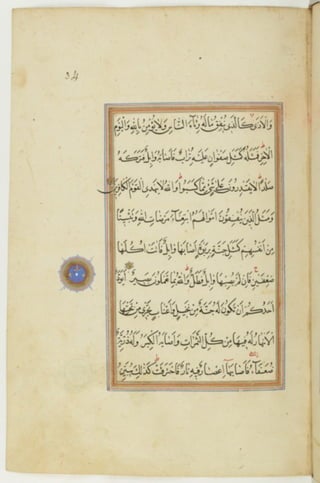 34
وَالْاَذٰى كَالَّذِى يُنْفِقُ مَالَهُ رِئَآءَ النَّاسِ وَلَا يُؤْمِنُ بِاللّٰهِ وَالْيَوْمِ
الْاٰخِرِ فَمَثَلُهُ كَمَثَلِ صَفْوَانٍ عَلَيْهِ تُرَابٌ فَاَصَابَهُ وَابِلٌ فَتَرَكَهُ
صَلْدًا لَا يَقْدِرُونَ عَلٰى شَىْءٍ مِمَّا كَسَبُوا وَاللّٰهُ لَا يَهْدِى الْقَوْمَ الْكَافِرِينَ
وَمَثَلُ الَّذِينَ يُنْفِقُونَ اَمْوَالَهُمُ ابْتِغَآءَ مَرْضَاتِ اللّٰهِ وَتَثْبِيتًا
مِنْ اَنْفُسِهِمْ كَمَثَلِ جَنَّةٍ بِرَبْوَةٍ اَصَابَهَا وَابِلٌ فَاٰتَتْ اُكُلَهَا
ضِعْفَيْنِ فَاِنْ لَمْ يُصِبْهَا وَابِلٌ فَطَلٌّ وَاللّٰهُ بِمَا تَعْمَلُونَ بَصِيرٌ اَيَوَدُّ
اَحَدُكُمْ اَنْ تَكُونَ لَهُ جَنَّةٌ مِنْ نَخِيلٍ وَاَعْنَابٍ تَجْرِى مِنْ تَحْتِهَا
الْاَنْهَارُ لَهُ فِيهَا مِنْ كُلِّ الثَّمَرَاتِ وَاَصَابَهُ الْكِبَرُ وَلَهُ ذُرِّيَّةٌ
ضُعَفَآءُ فَاَصَابَهَا اِعْصَارٌ فِيهِ نَارٌ فَاحْتَرَقَتْ كَذٰلِكَ يُبَيِّنُ